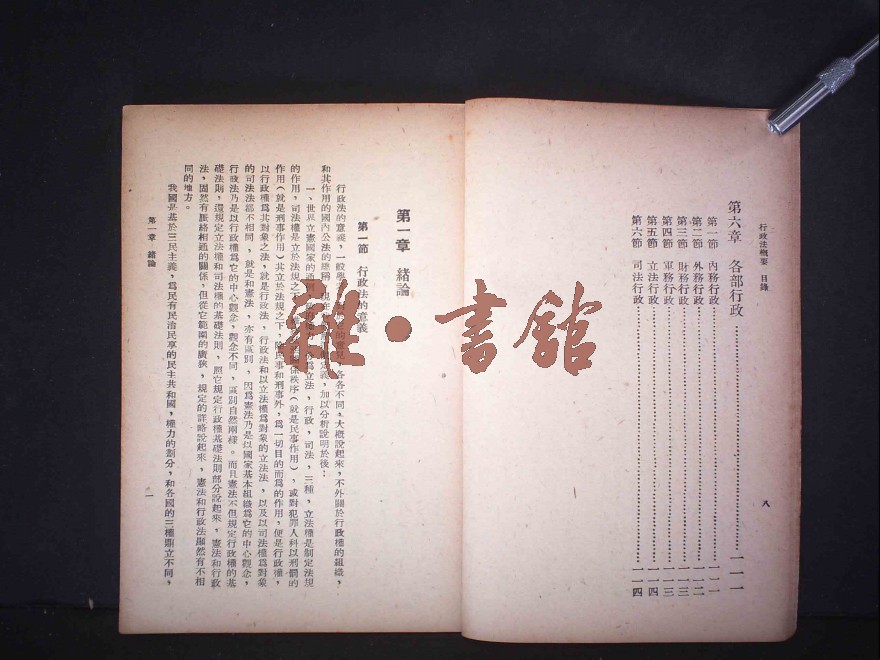 行政法概要 目錄
第六章 各部行政……一一一
第一節 內務行政……一一一
第二節 外務行政……一一二
第三節 財務行政……一一三
第四節 軍務行政……一一三
第五節 立法行政……一一四
第六節 司法行政……一一四
八
第一章 緒論
第一節 行政法的意義
行政法的意義，一般學 各各不同。大概說起來，不外關於行政權的組織，
和其作用的國內公法的總稱， 加以分析說明於後：
一、世界立憲國家的通例， 爲立法，行政，司法，三種，立法權是制定法規
的作用，司法權是立於法規之下， 係秩序（就是民事作用），或對犯罪人科以刑罰的
作用（就是刑事作用）其立於法規之下，除民事和刑事外，爲一切目的而爲的作用，便是行政權，
以行政權爲其對象之法，就是行政法，行政法和以立法權爲對象的立法法，以及以司法權爲對象
的司法法都不相同，就是和憲法，亦有區別，因爲憲法乃是以國家基本組織爲它的中心觀念，
行政法乃是以行政權爲它的中心觀念，觀念不同，區別自然兩樣。而且憲法不但規定行政權的基
礎法則，還規定立法權和司法權的基礎法則，照它規定行政權基礎法則部分說起來，憲法和行政
法，固然有脈絡相通的關係，但從它範圍的廣狹，規定的詳略說起來，憲法和行政法顯然有不相
同的地方。
我國是基於三民主義，爲民有民治民享的民主共和國，權力的劃分，和各國的三權鼎立不同，
第一章 緒論
一
雜·書館